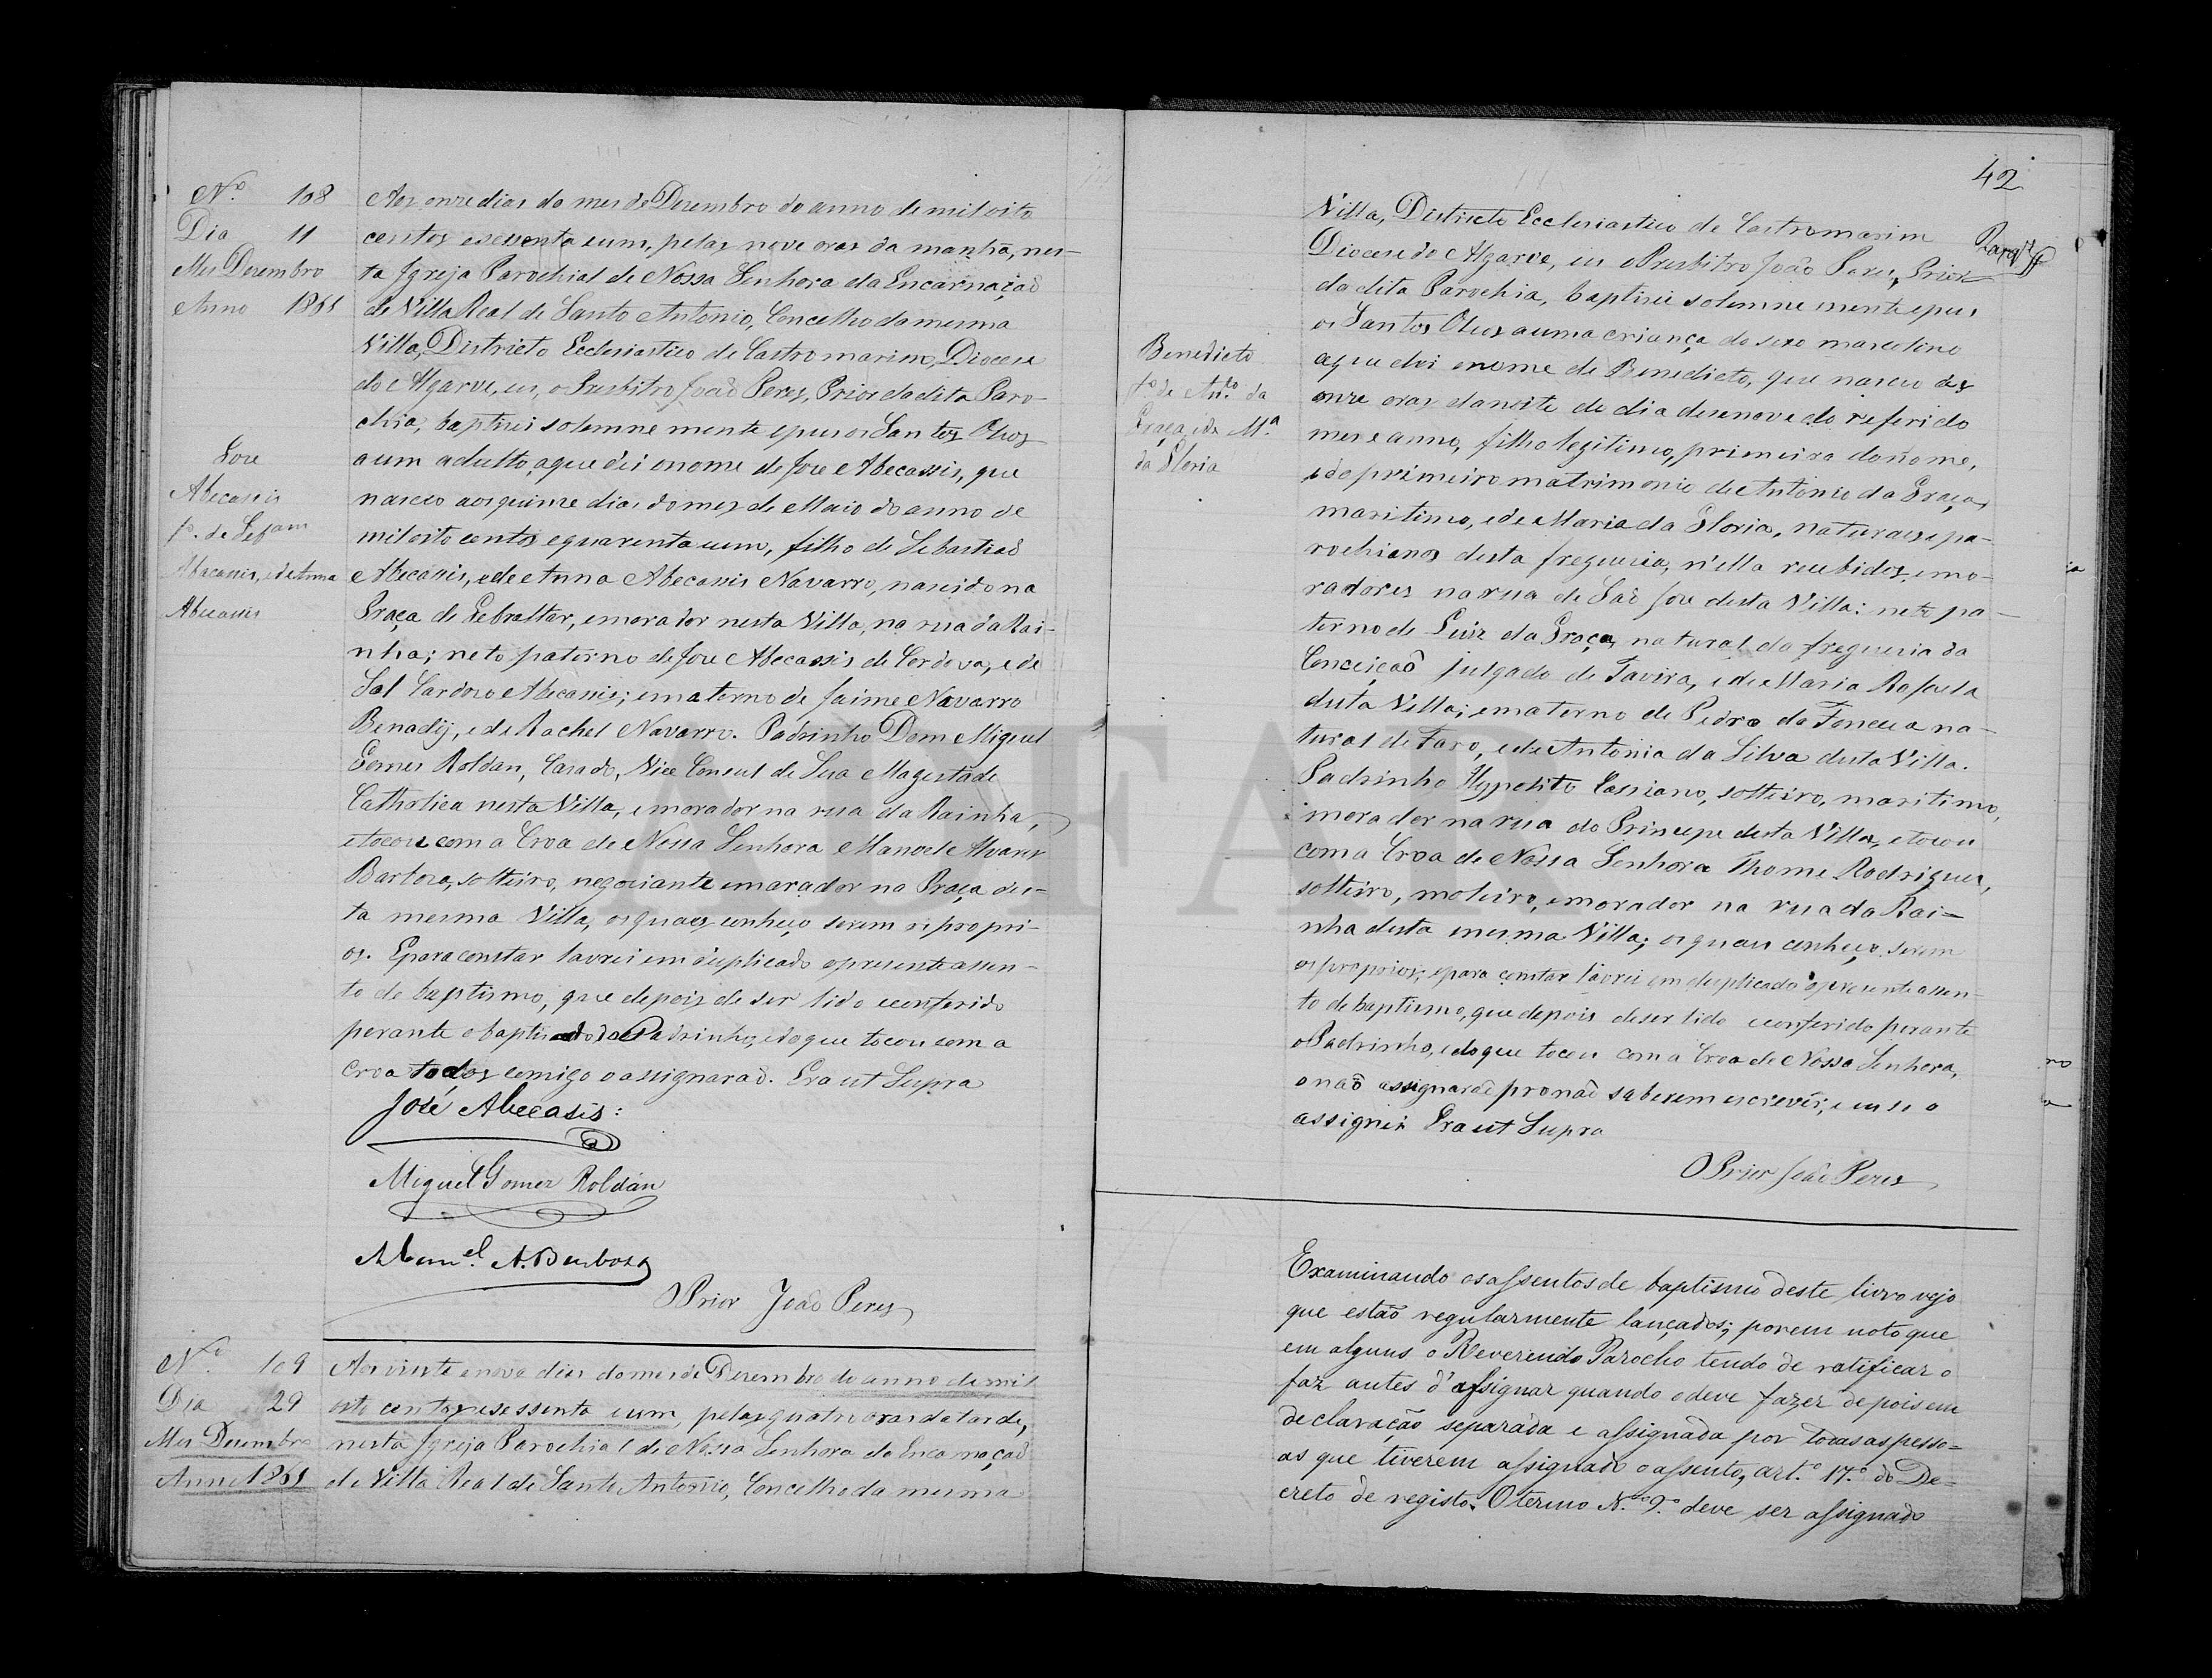 Nº 108
Dia 11
Mes Desembro
Anno 1861
José
Abecassis
fº. de Sebam
Abacassis, e de Anna
Abecassis
Aos onze dias do mes de Desembro do anno de mil oito
centos e sessenta e um, pelas nove oras da manhã, nes-
ta Igreja Parochial de Nossa Senhora da Encarnação
de Villa Real de Santo Antonio, Concelho da mesma
Villa, Districto Ecclesiastico de Castromarim, Diocese
do Algarve, eu, o Presbitro João Peres, Prior da dita Paro-
chia, baptisei solemnemente e pus os Santos Oleos
a um adulto, a que dei o nome de Jose Abecassis, que
nasceo aos quinze dias do mes de Maio do anno de
mil oito centos e quarenta e um, filho de Sebastiaõ
Abecassis, e de Anna Abecassis Navarro, nascido na
Praça de Gebraltar, e morador nesta Villa, na rua da Rai-
nha; neto paterno de Jose Abecassis de Cordova, e de
Sal Cardozo Abecassis; e materno de Jaime Navarro
Benadÿ, e de Rachel Navarro. Padrinho Dom Miguel
Gomes Roldan, Casado, Vice Consul de Sua Magestade
Catholica nesta Villa, e morador na rua da Rainha,
e tocou com a Croa de Nossa Senhora Manoel Alvares
Barboza, solteiro, negociante e morador na Praça des-
ta mesma Villa, os quaes conheço serem os propri-
os. E para constar lavrei em duplicado o presente assen-
to de baptismo, que depois de ser lido e conferido
perante o baptisado do Padrinho, e do que tocou com a
Croa todos comigo o assignaraõ. Era ut Supra
José Abecasis:
Miguel Gomez Roldán
Manel. A. Barboza
O Prior João Peres
Nº 109
Dia 29
Mes Desembro
Anno 1861
Aos vinte e nove dias do mes de Desembro do anno de mil
oito centos e sessenta e um, pelas quatro oras da tarde,
nesta Igreja Parochial de Nossa Senhora da Encarnação
de Villa Real de Santo Antonio, Concelho da mesma
42
Villa, Districto Ecclesiastico de Castromarim
Diocese do Algarve, eu o Presbitro João Peres, Prior
da dita Parochia, baptisei solemnemente e pus
os Santos Oleos a uma criança do sexo masculino
a que dei o nome de Benedicto, que nasceo as
onze oras da noite do dia desenove do referido
mes e anno, filho legitimo, primeiro do nome,
e do primeiro matrimonio de Antonio da Graça,
maritimo, e de Maria da Gloria, naturaes e pa-
rochianos desta freguesia, n'ella recebidos, e mo-
radores na rua de Saõ Jose desta Villa: neto pa-
terno de Luiz da Graça, natural da freguesia da
Conceiçaõ julgado de Tavira, e de Maria Rafaela
desta Villa; e materno de Pedro da Fonceca na-
tural de Faro, e de Antonia da Silva desta Villa.
Padrinho Hyppolito Cassiano, solteiro, maritimo,
morador na rua do Principe desta Villa, e tocou
com a Croa de Nossa Senhora Thome Rodrigues,
solteiro, moleiro, e morador na rua da Rai-
nha desta mesma Villa; os quaes conheço serem
os proprios; e para constar lavrei em duplicado o presente assen-
to de baptismo, que depois de ser lido e conferido perante
o Padrinho, e do que tocou com a Croa de Nossa Senhora,
o naõ assignaraõ pro naõ saberem escrever, e eu so o
assignei Era ut Supra
O Prior João Peres
Benedicto
fº. de Antº. da
Graça, e de Mª.
da Gloria
Examinando os assentos de baptismo deste livro vejo
que estaõ regularmente lançados; porem noto que
em alguns o Reverendo Parocho tendo de ratificar o
faz antes d'assignar quando o deve fazer depois em
declaração separada e assignada por todas as pesso=
as que tiverem assignado o assento, art.º 17.º do De=
creto de registo. O termo N.º 9.º deve ser assignado